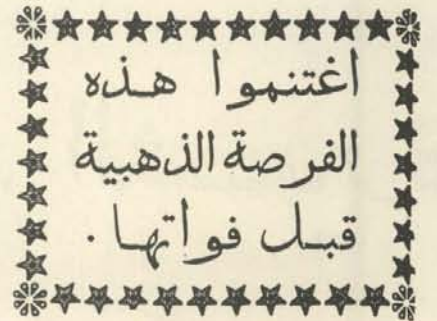 اغتنموا هذه
الفرصة الذهبية
قبل فواتها.